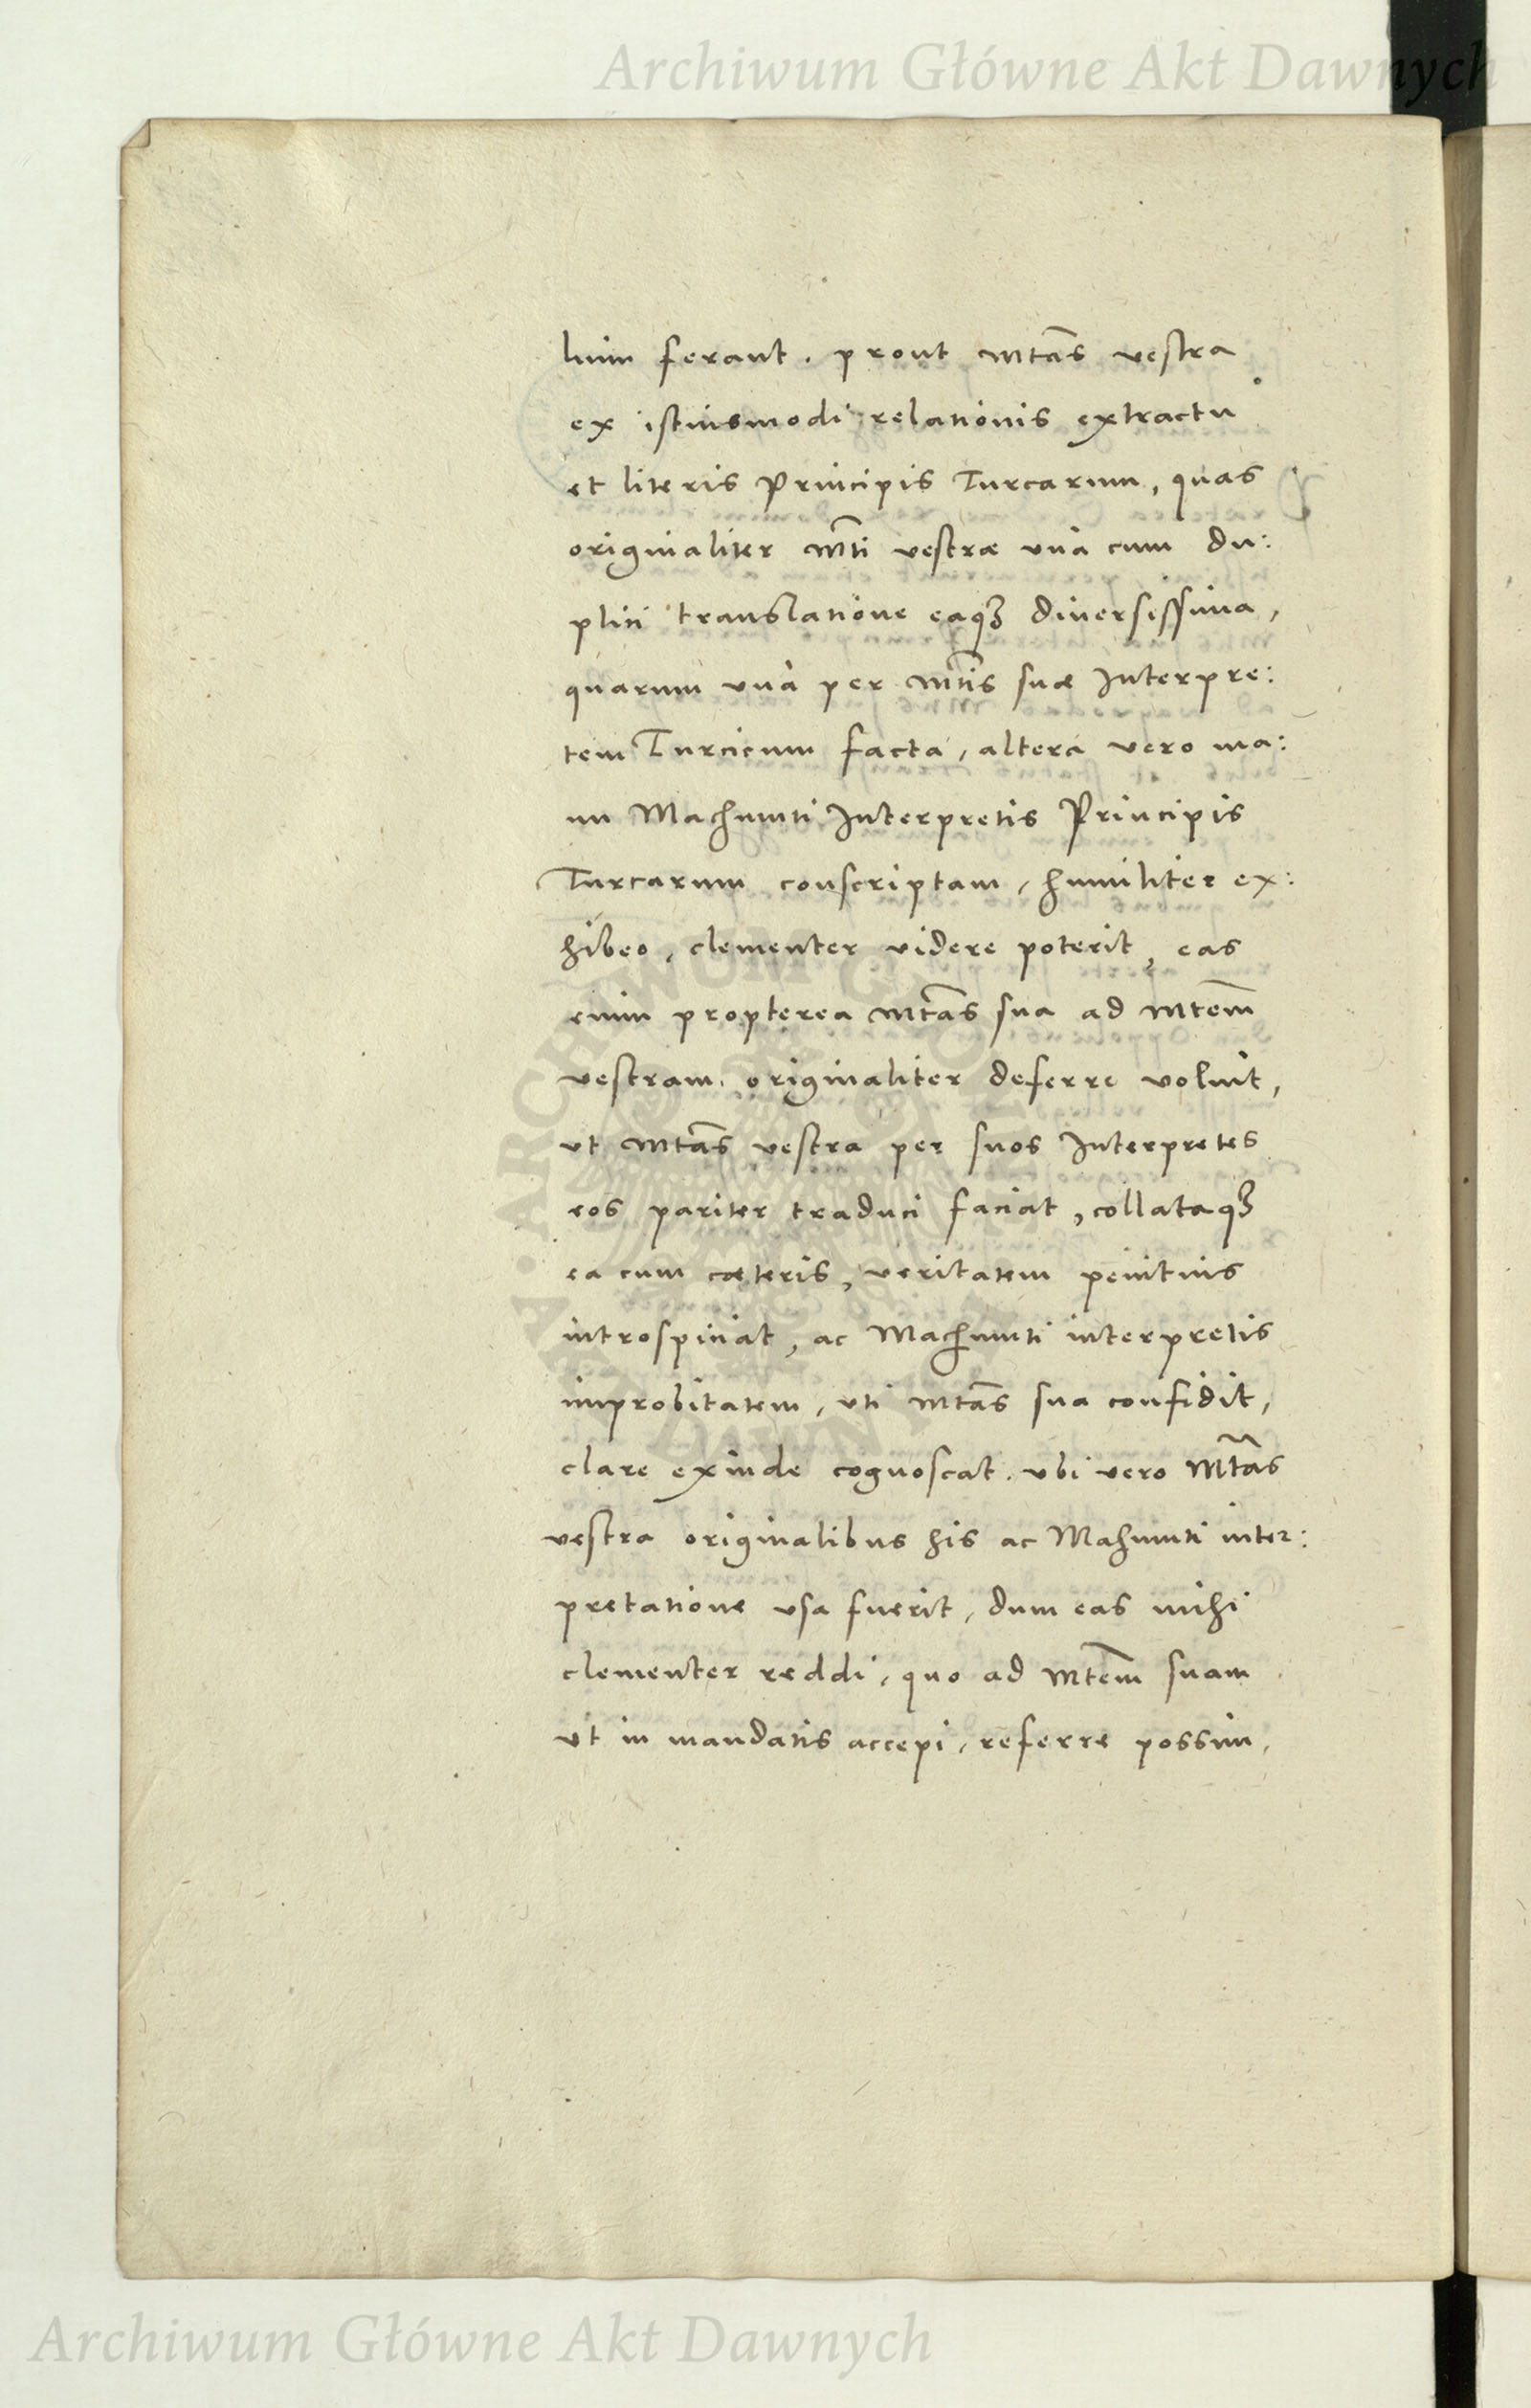 Archiwum Główne Akt Dawnych
lium ferant. prout Mtãs vestra
ex istiusmodi relationis extractu
et literis Principis Turcarum, quas
originaliter Mt̃i vestræ vna cum du:
plici translatione eaqꝫ diuersissima,
quarum vna per Mt̃is suæ Interpre:
tem Turcicum facta, altera vero ma:
nu Machmuti Interpretis Principis
Turcarum conscriptam, humiliter ex:
hibeo, clementer videre poterit, eas
enim propterea Mtãs sua ad Mtẽm
vestram originaliter deferre voluit,
vt Mtãs vestra per suos Interpretes
eos pariter traduci faciat, collataqꝫ
ea cum cæteris, veritatem penitius
introspiciat, ac Machmuti interpretis
improbitatem, vti Mtãs sua confidit,
clare exinde cognoscat. vbi vero Mtãs
vestra originalibus his ac Mahmuti inter:
pretatione vsa fuerit, dum eas mihi
clementer reddi, quo ad Mtẽm suam
vt in mandatis accepi, referre possim,
Archiwum Główne Akt Dawnych